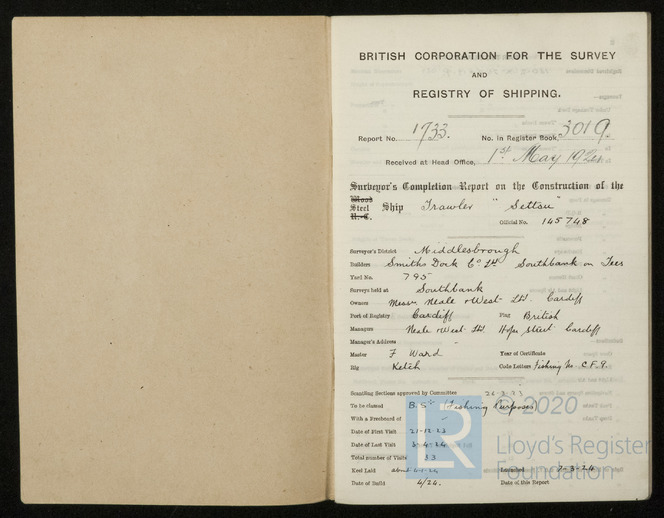 BRITISH CORPORATION FOR THE SURVEY
AND
REGISTRY OF SHIPPING.
Report No. 1733. No. in Register Book, 3019.
Received at Head Office, 1st May 1924
Surveyor's Completion Report on the Construction of the
Wood
Steel Ship Trawler "Settsu"
Official No. 145748
Surveyor's District Middlesbrough
Builders Smiths Dock Co Ld Southbank on Tees
Yard No. 795
Surveys held at Southbank
Owners Messrs Neale & West Ltd. Cardiff
Port of Registry Cardiff Flag British
Managers Neale & West Ltd Hope Street Cardiff
Manager's Address
Master F Ward Year of Certificate
Rig Ketch Code Letters Fishing No. C.F.9.
Scantling Sections approved by Committee 26-3-23
To be classed B.S* (Fishing Purposes)
With a Freeboard of -
Date of First Visit 21-12-23
Date of Last Visit 3-4-24
Total number of Visits 33
Keel Laid about Launched 7-3-24
Date of Build 4/24. Date of this Report
© 2020
LR Lloyd's Register
Foundation